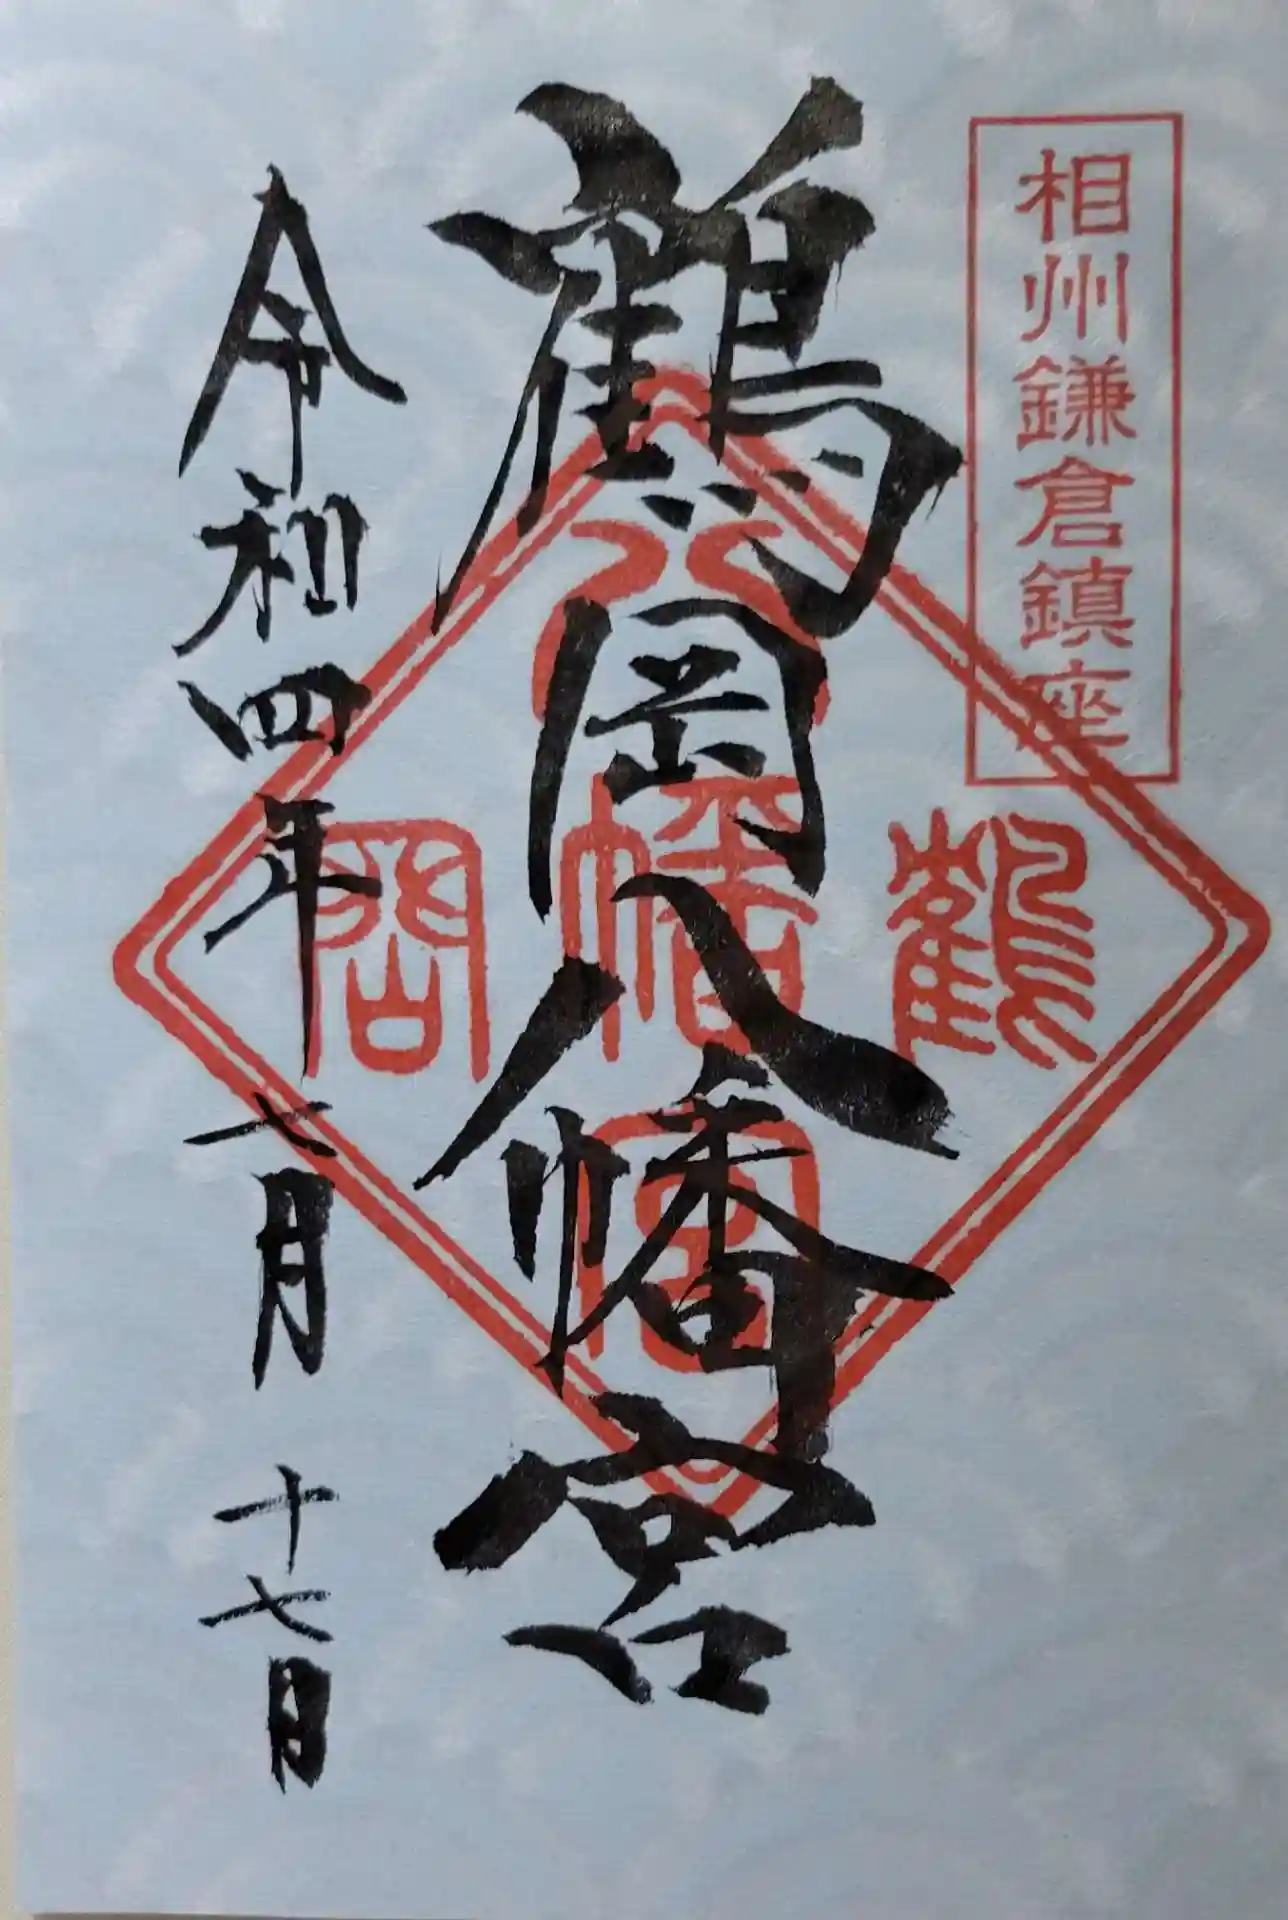 相州鎌倉鎮座
鶴岡八幡宮
鶴岡八幡宮
令和四年七月十七日